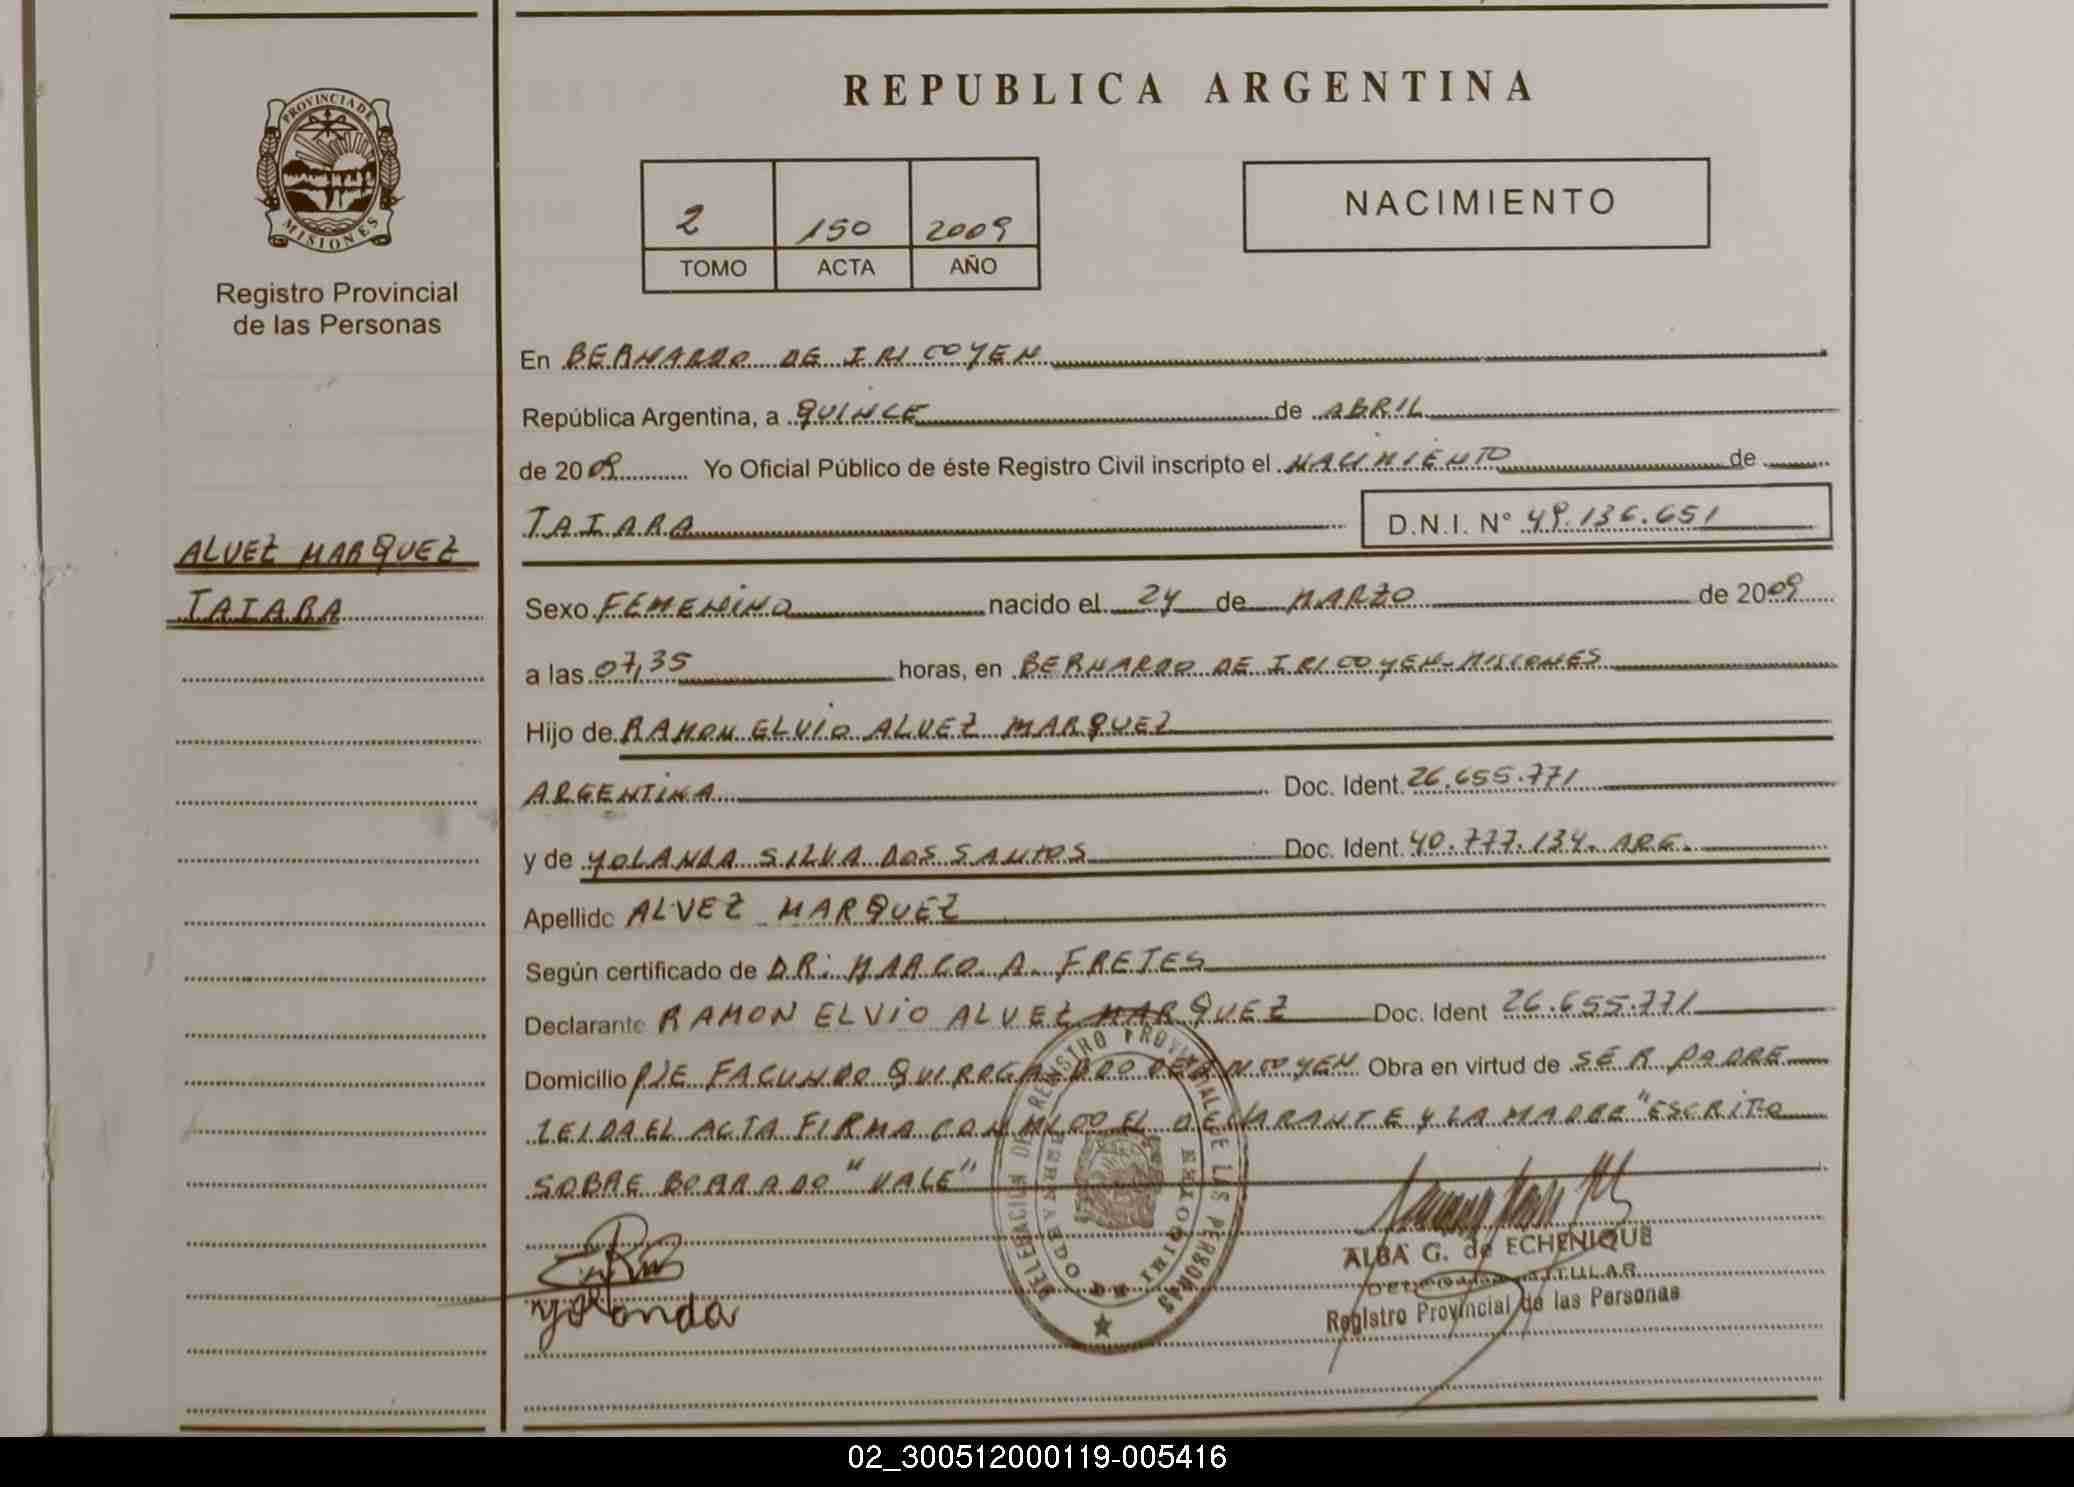 REPUBLICA ARGENTINA
PROVINCIA DE
MISIONES
Registro Provincial
de las Personas
2 150 2009
TOMO ACTA AÑO
NACIMIENTO
En BERNARDO DE IRICOYEN
República Argentina, a QUINCE de ABRIL
de 2009 Yo Oficial Público de éste Registro Civil inscripto el NACIMIENTO de
TAIARA D.N.I. N° 49.136.651
ALVEZ MARQUEZ
TAIARA
Sexo FEMENINO nacido el 24 de MARZO de 2009
a las 07,35 horas, en BERNARDO DE IRICOYEN-MISIONES
Hijo de RAMON ELVIO ALVEZ MARQUEZ
ARGENTINA Doc. Ident. 26.655.771
y de YOLANDA SILVA DOS SANTOS Doc. Ident. 40.777.134. ARG.
Apellido ALVEZ MARQUEZ
Según certificado de DR: MARCO A. FRETES
Declarante RAMON ELVIO ALVEZ MARQUEZ Doc. Ident 26.655.771
Domicilio PJE FACUNDO QUIROGA BDO DE IRICOYEN Obra en virtud de SER PADRE
LEIDA EL ACTA FIRMA CONMIGO EL DECLARANTE Y LA MADRE "ESCRITO
SOBRE BORRADO "VALE"
DELEGACION DE REGISTRO PROVINCIAL DE LAS PERSONAS
BERNARDO DE IRIGOYEN
Yolanda
ALBA G. de ECHENIQUE
TITULAR
Registro Provincial de las Personas
02_300512000119-005416